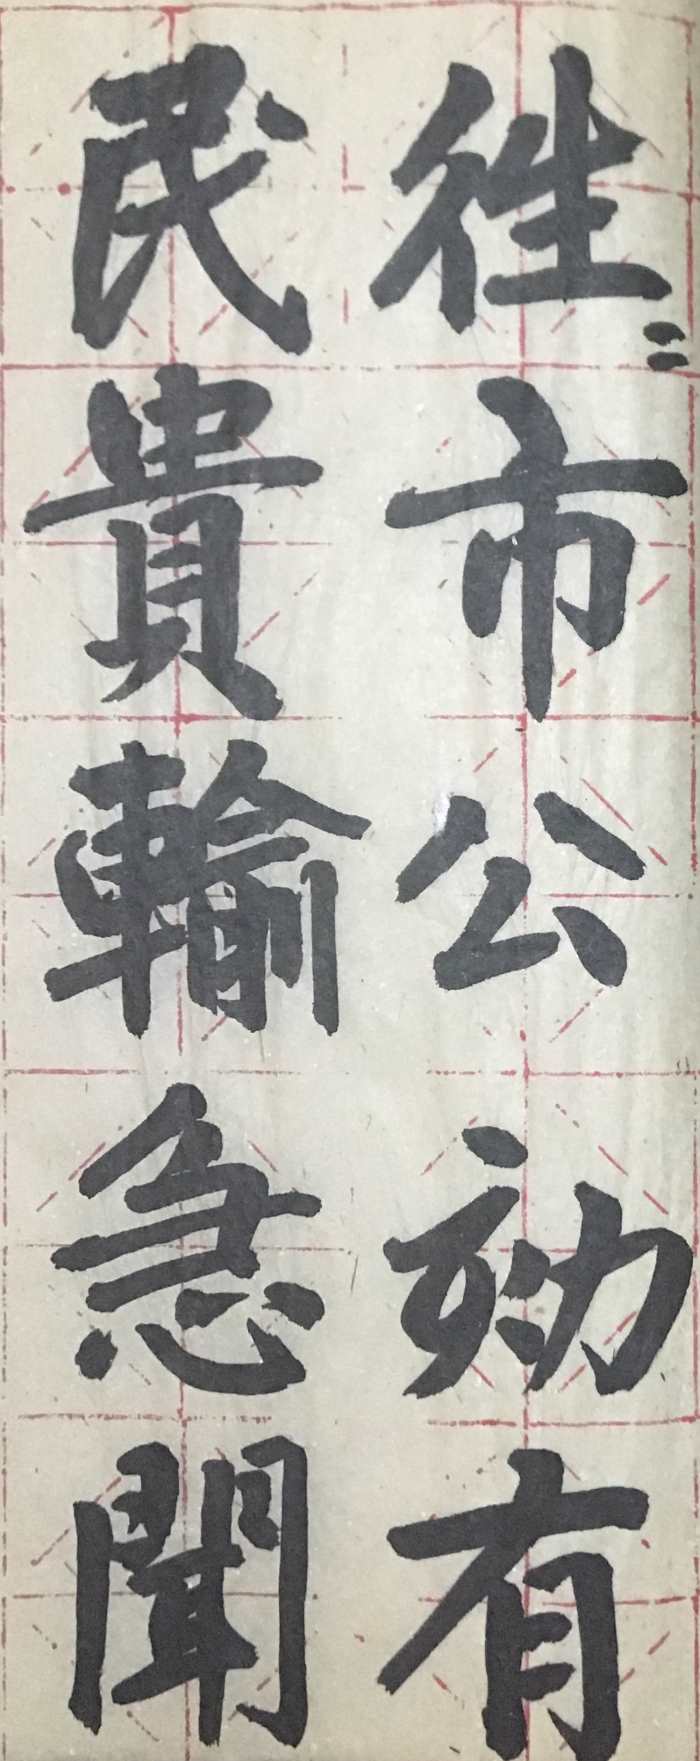 徃〻市公劾有
民貴輸急聞